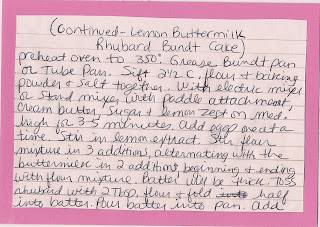 (Continued - Lemon Buttermilk
Rhubarb Bundt Cake)
preheat oven to 350°. Grease Bundt pan
or Tube Pan. Sift 2½ C. flour & baking
powder & salt together. With electric mixer
or stand mixer with paddle attachment,
cream butter, sugar & lemon zest on med.
high for 3-5 minutes. Add eggs one at a
time. Stir in lemon extract. Stir flour
mixture in 3 additions, alternating with the
buttermilk in 2 additions, beginning & ending
with flour mixture. Batter will be thick. Toss
rhubarb with 2 Tbsp. flour & fold half
into batter. Pour batter into pan. Add